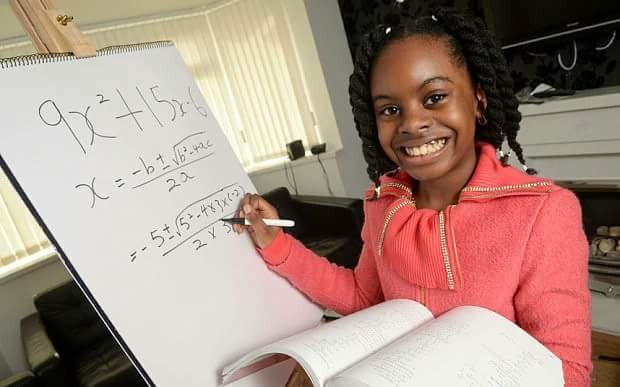 9x² + 15x - 6
x = -b ± √b² - 4ac / 2a
= -5 ± √5² - 4×3×(-2) / 2×3